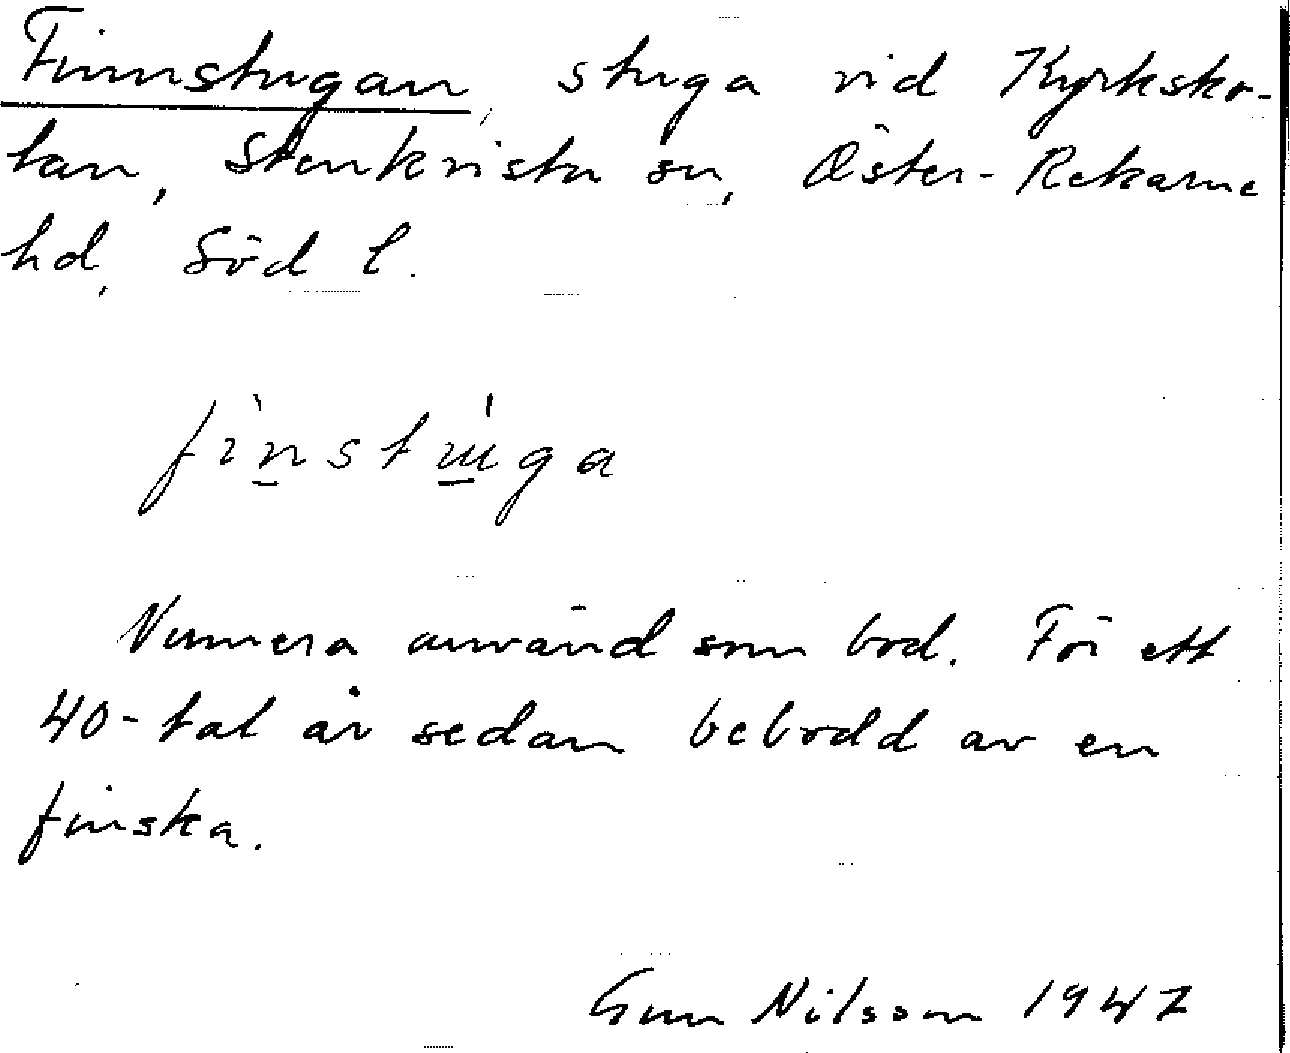 Finnstugan, stuga vid Kyrksko-
lan, Stenkvista sn, Öster-Rekarne
hd, Söd l.
fìn̲stɯ̲́ga
Numera använd som bod. För ett
40-tal år sedan bebodd av en
finska.
Gun Nilsson 1947